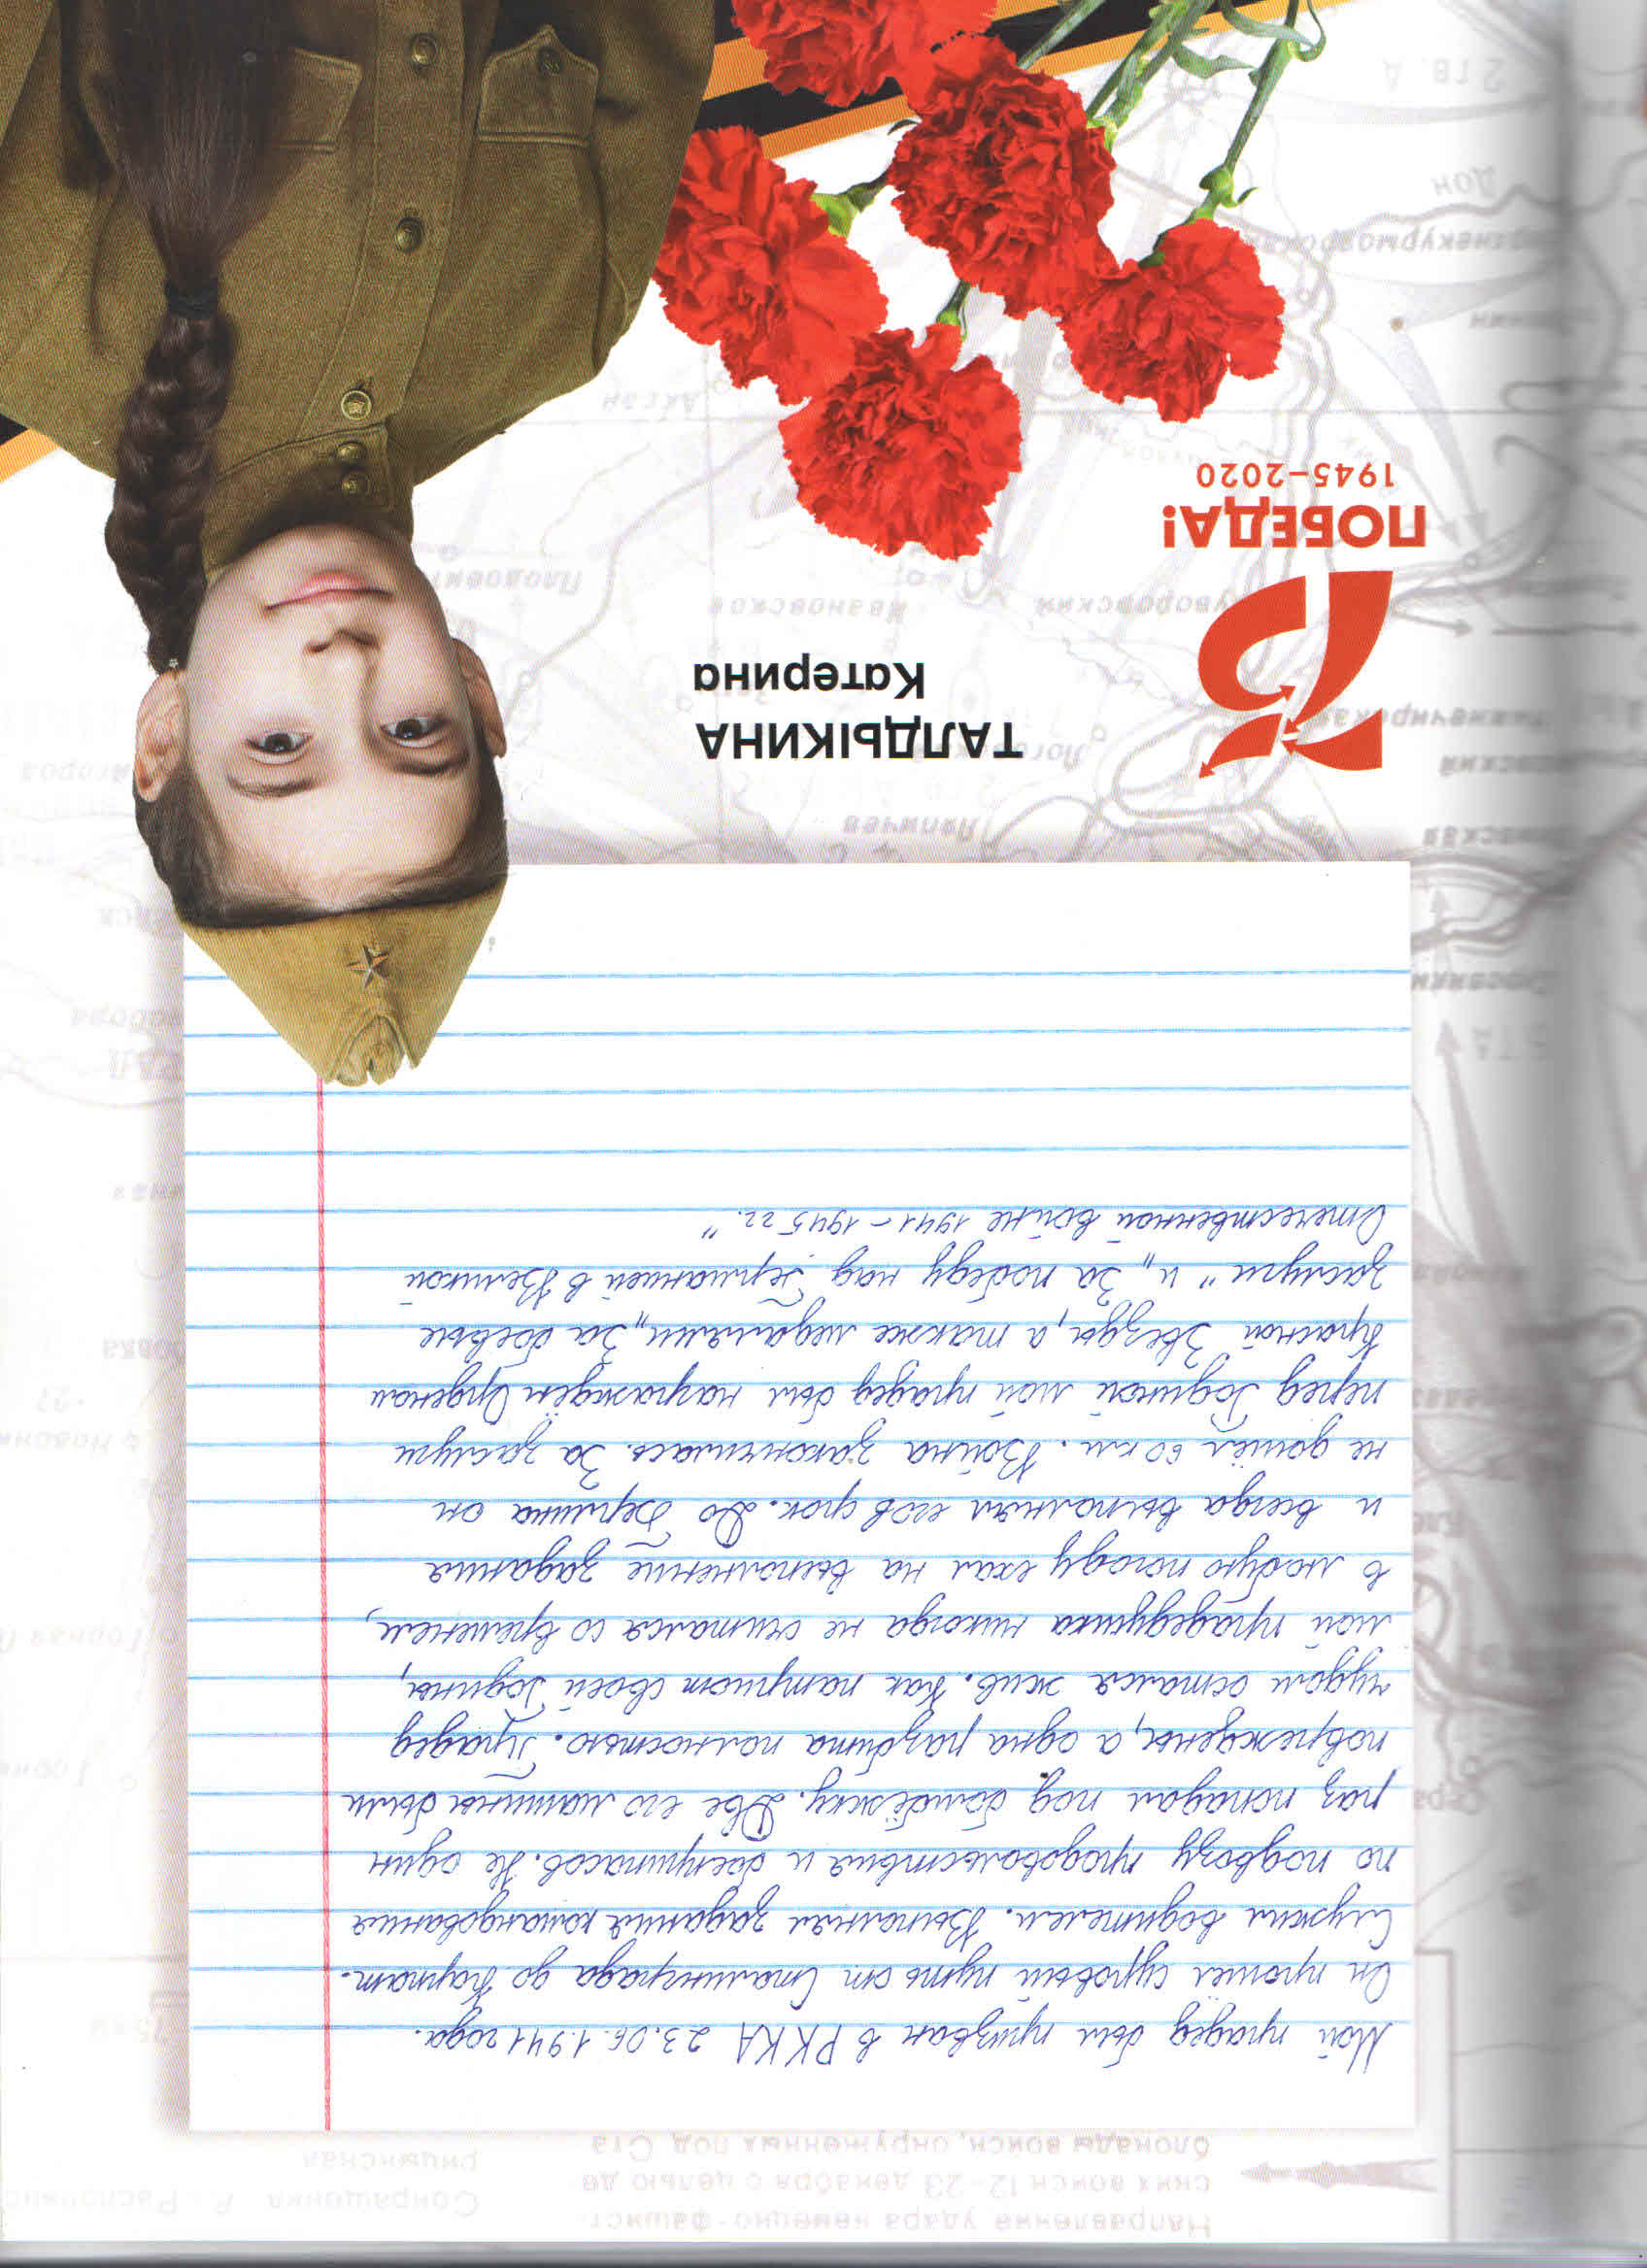 Направление удара немецко-фашист-
ских войск 12–23 декабря с целью де
блокады войск, окруженных под Ста
Сокращения
рицынская
Мой прадед был призван в РККА 23.06.1941 года.
Он прошёл суровый путь от Сталинграда до Карпат.
Служил водителем. Выполнял задания командования
по подвозу продовольствия и боеприпасов. Не один
раз попадал под бомбёжку. Две его машины были
повреждены, а одна разбита полностью. Прадед
чудом остался жив. Как патриот своей Родины,
мой прадедушка никогда не считался со временем,
в любую погоду ехал на выполнение задания
и всегда выполнял его в срок. До Берлина он
не дошёл 60 км. Война закончилась. За заслуги
перед Родиной мой прадед был награждён Орденом
Красной Звезды, а также медалями „За боевые
заслуги" и „За победу над Германией в Великой
Отечественной войне 1941–1945 гг."
Ляпичев
ТАЛДЫКИНА
Катерина
Ивановское
75
ПОБЕДА!
1945–2020
Аксай
Дон
2 гв. А